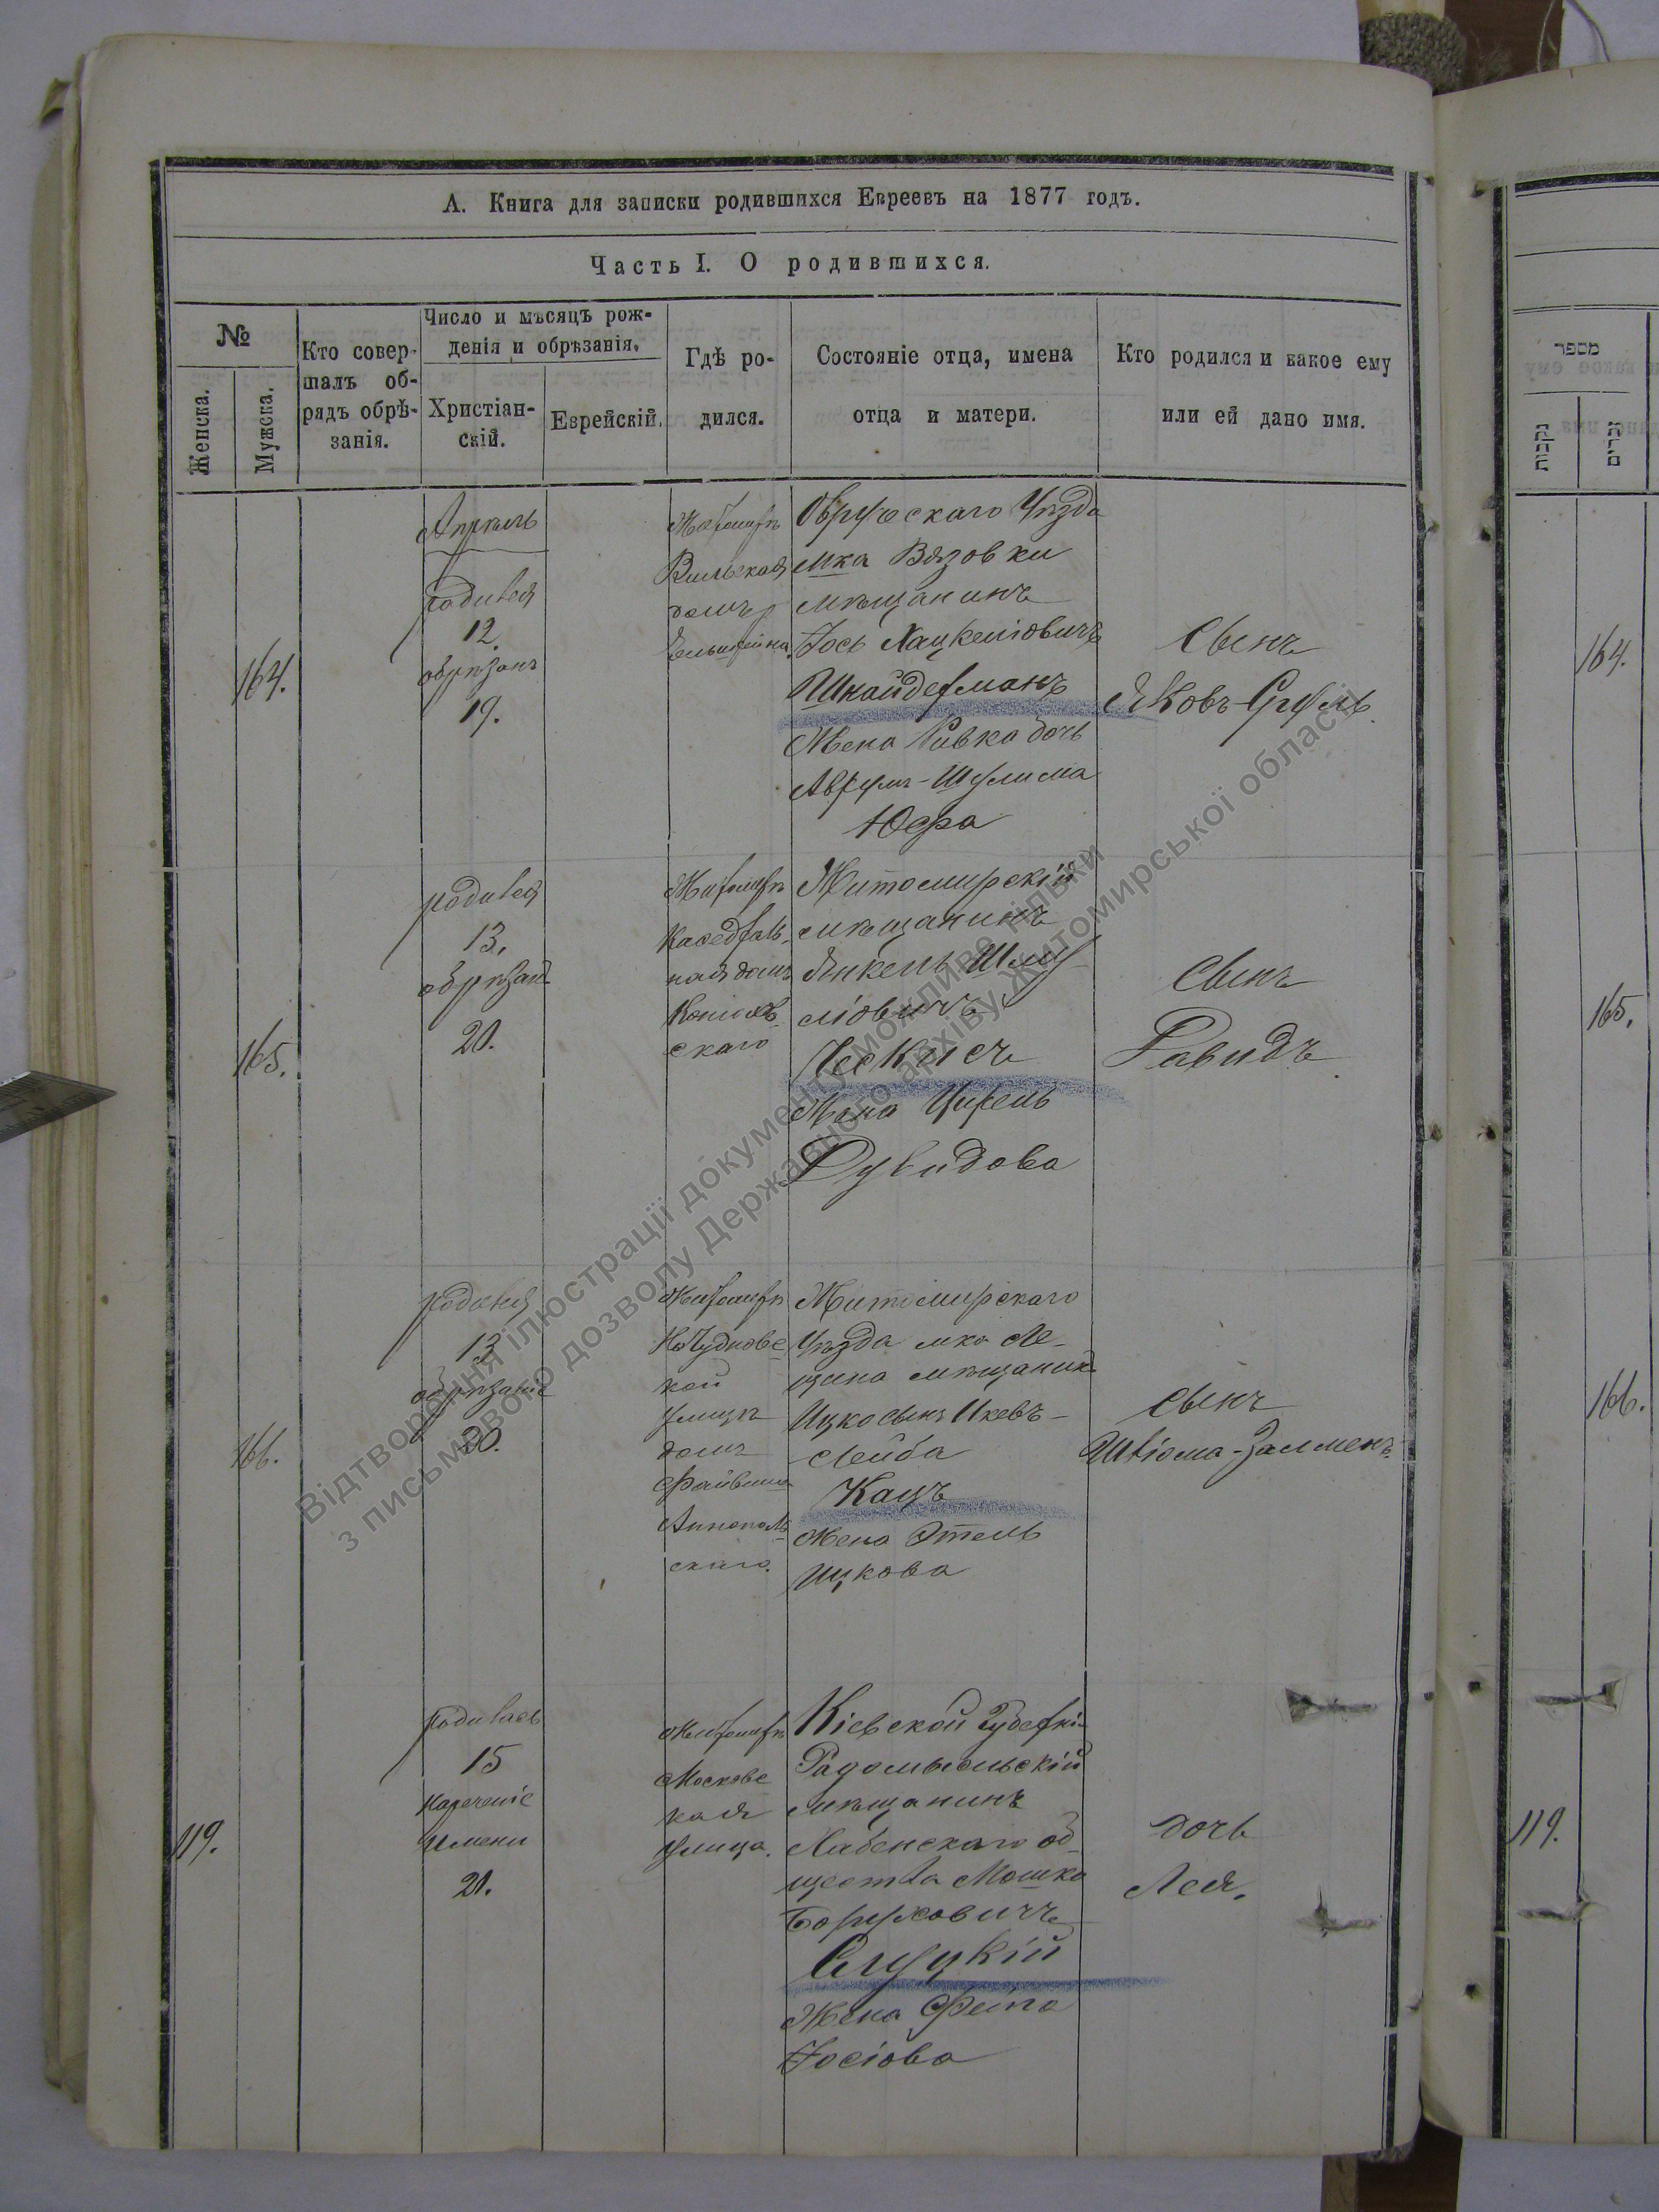 А. Книга для записки родившихся Евреевъ на 1877 годъ.
Часть I. О родившихся.
№
Женска.
Мужска.
Кто совер-
шалъ об-
рядъ обрѣ-
занія.
Число и мѣсяцъ рож-
денія и обрѣзанія.
Христіан-
скій.
Еврейскій.
Гдѣ ро-
дился.
Состояніе отца, имена
отца и матери.
Кто родился и какое ему
или ей дано имя.
164.
Апрѣль
родился
12.
обрѣзанъ
19.
Житомиръ
Вильская
домъ
Овручскаго Уѣзда
мка Вязовки
мѣщанинъ
Іось Хацкеліовичъ
Шнайдерманъ
Жена Ривка дочь
Аврумъ-Шулима
Юфа
Сынъ
Яковъ-Сруль
165.
родился
13.
обрѣзанъ
20.
Житомиръ
Каѳедраль-
ная домъ
скаго
Житомирскій
мѣщанинъ
Янкель Шму-
ліовичъ
Жена Цирель
Дувидова
Сынъ
Давидъ
166.
родился
13
обрѣзаніе
20.
Житомиръ
На Чудновс-
кой
улицѣ
домъ
Файвиша
Аннополь-
скаго.
Житомирскаго
Уѣзда мка Ле-
щина мѣщанинъ
Ицко сынъ
Лейба
Кацъ
Жена Этель
Ицкова
Сынъ
Шліома-Залменъ
119.
родилась
15
нареченіе
имени
21.
Житомиръ
Московс-
кая
улица.
Кіевской Губерніи
Радомысльскій
мѣщанинъ
Хабенскаго об-
щества Мошко
Боруховичъ
Слуцкій
Жена
Іосіова
дочь
Лея.
מספר
נקבות
זכרים
164.
165.
166.
119.
Відтворення ілюстрації документу можливе тільки
з письмового дозволу Державного архіву Житомирської області